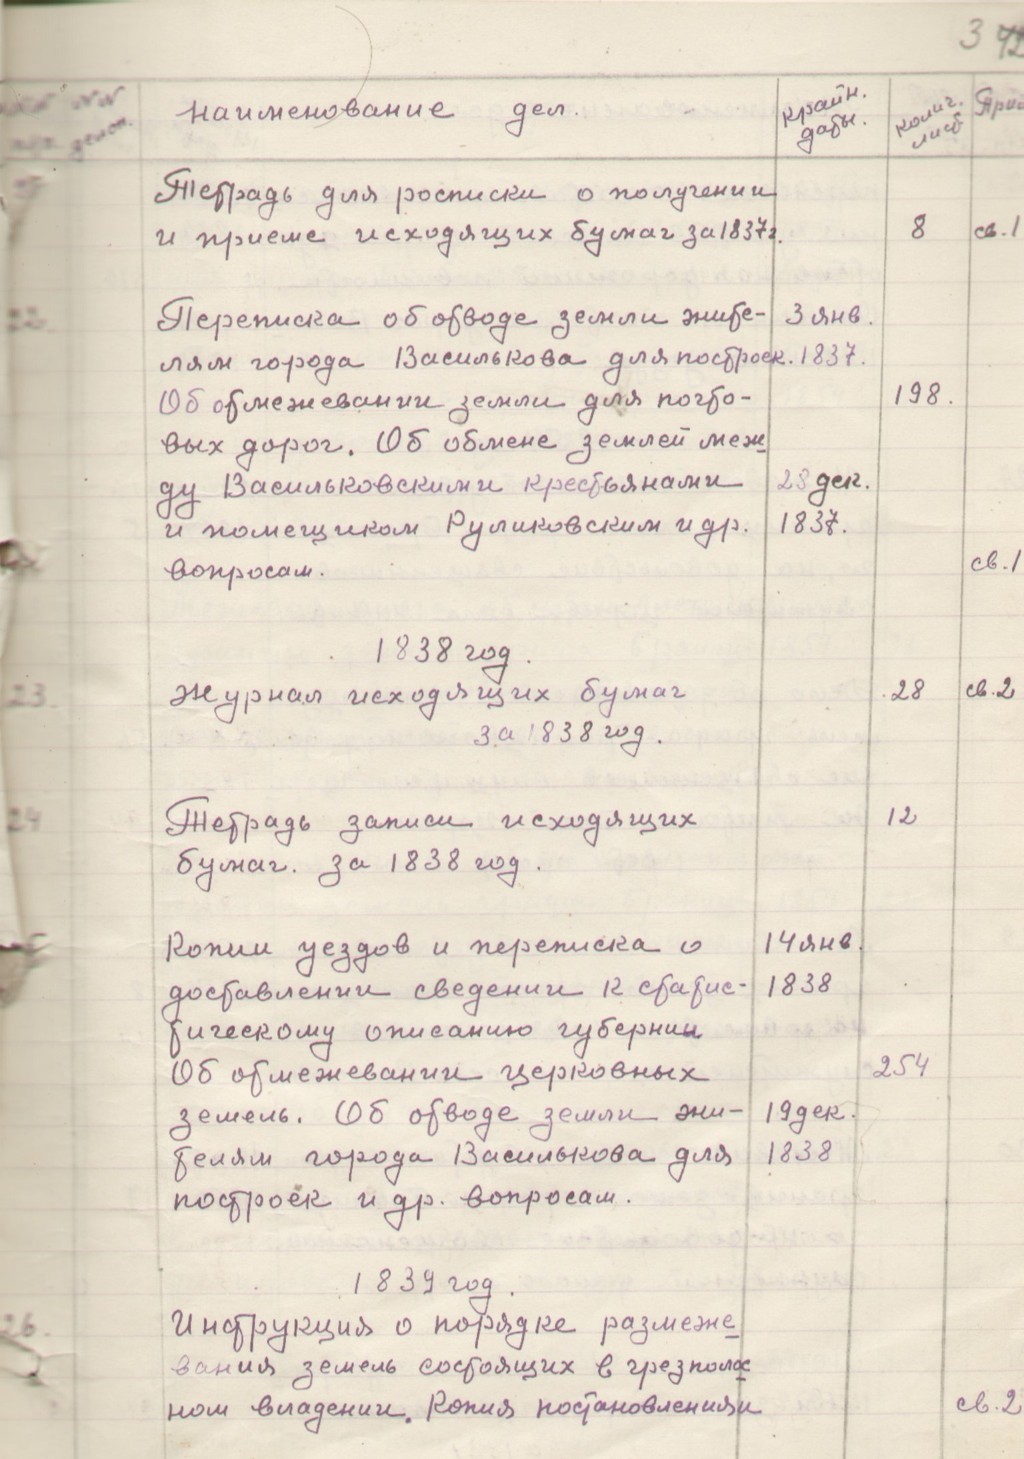 3 42
№№ делоп.
наименование дел.
крайн. даты.
колич. лист
При
Тетрадь для росписки о получении
и приеме исходящих бумаг за 1837г.
8
св.1
22
Переписка об отводе земли жите-
3 янв.
лям города Василькова для построек.
1837.
Об отмежевании земли для почто-
198.
вых дорог. Об обмене землей меж
ду Васильковскими крестьянами
28 дек.
и помещиком Руликовским и др.
1837.
вопросам.
св.1
1838 год.
23
Журнал исходящих бумаг
28
св.2
за 1838 год.
24
Тетрадь записи исходящих
12
бумаг. за 1838 год.
Копии уездов и переписка о
14 янв.
доставлении сведении к статис-
1838
тическому описанию губернии
Об отмежевании церковных
254
земель. Об отводе земли жи-
19 дек.
телям города Василькова для
1838
построек и др. вопросам.
1839 год.
26.
Инструкция о порядке размеже
вания земель состоящих в чрезполос
ном владении. Копия постановления и
св.2